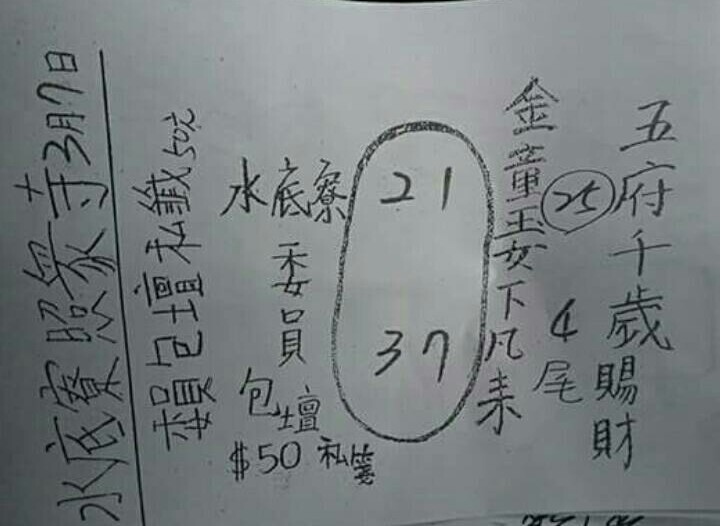 五府千歲賜財
25
4尾
金童玉女下凡来
21
37
水底寮
委員
包壇
$50 私箋
賴包壇私籤50元
水底寮照衆寺3月7日